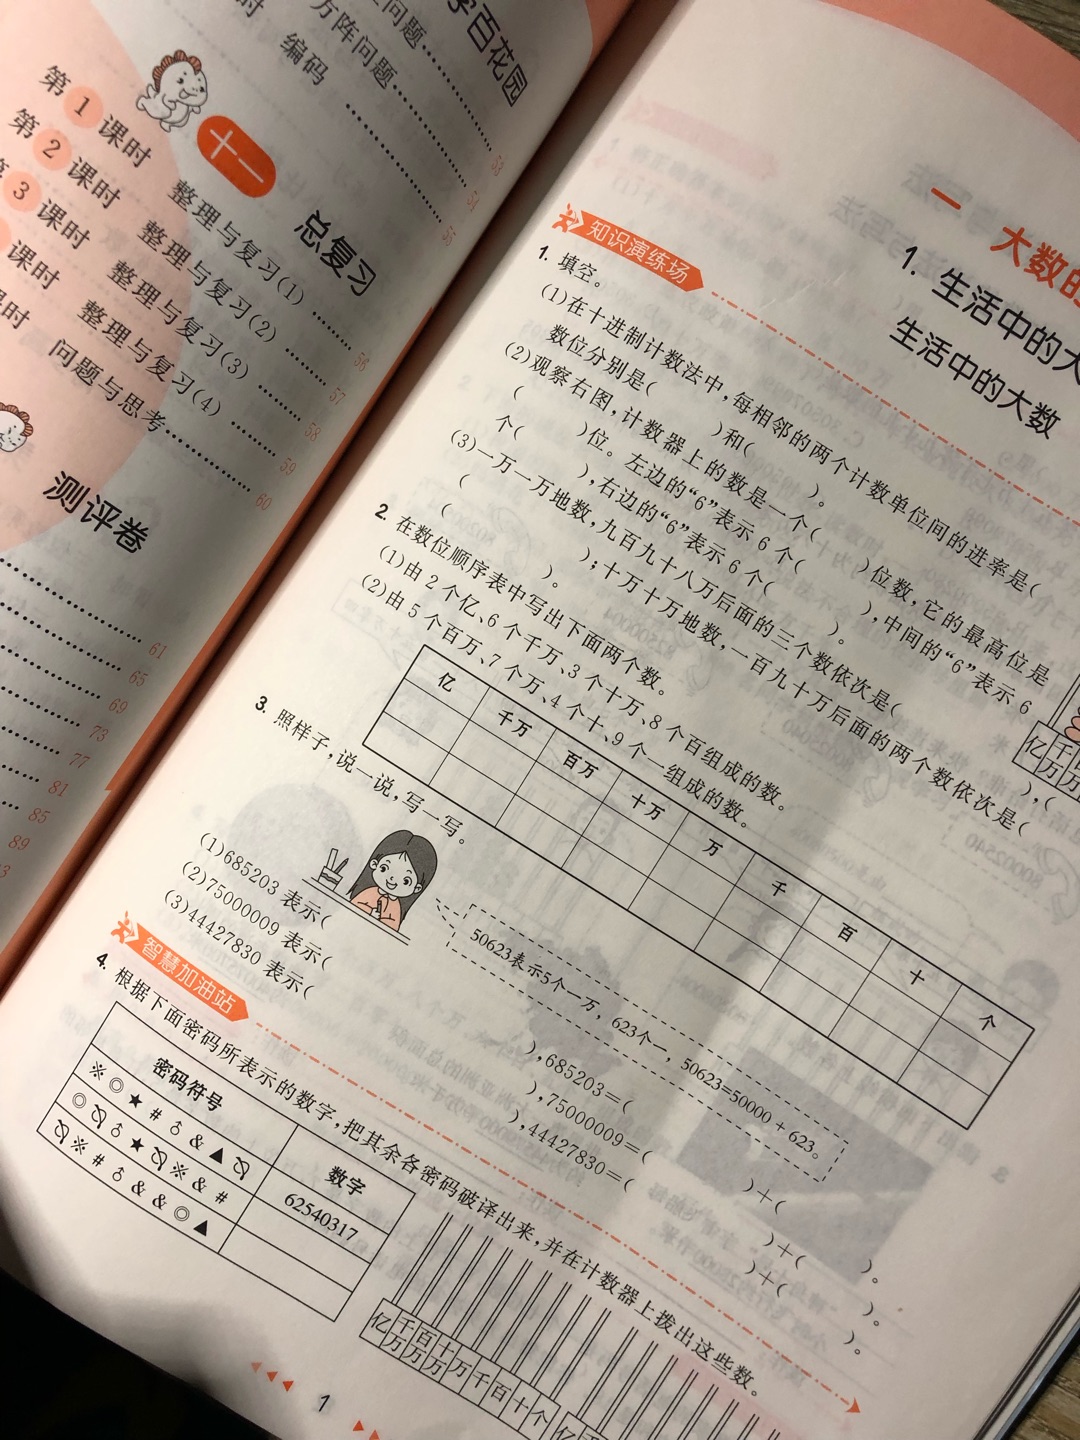 百花园
问题……
53
方阵问题……
54
时 编码 ……
55
十一 总复习
第1课时 整理与复习(1) …… 56
第2课时 整理与复习(2) …… 57
第3课时 整理与复习(3) …… 58
课时 整理与复习(4) …… 59
课时 问题与思考…… 60
测评卷
61
65
69
73
77
81
85
89
一 大数
1. 生活中的大
生活中的大数
知识演练场
1. 填空。
(1)在十进制计数法中,每相邻的两个计数单位间的进率是(
数位分别是(  )和(  )。
(2)观察右图,计数器上的数是一个(  )位数,它的最高位是
(  )位。左边的“6”表示6个(  ),中间的“6”表示6
个(  ),右边的“6”表示6个(  )。
(3)一万一万地数,九百九十八万后面的三个数依次是(  ),(
(  );十万十万地数,一百九十万后面的两个数依次是(
(  )。
亿 千万
2. 在数位顺序表中写出下面两个数。
(1)由2个亿、6个千万、3个十万、8个百组成的数。
(2)由5个百万、7个万、4个十、9个一组成的数。
亿 千万 百万 十万 万 千 百 十 个
3. 照样子,说一说,写一写。
50623表示5个一万，623个一，50623=50000+623。
(1)685203 表示(  ),685203=(  )+(  )。
(2)75000009 表示(  ),75000009=(  )+(  )。
(3)44427830 表示(  ),44427830=(  )+(  )。
智慧加油站
4. 根据下面密码所表示的数字,把其余各密码破译出来,并在计数器上拨出这些数。
密码符号 数字
※◎★#♂&▲⦰ 62540317
◎⦰♂★⦰※&#
⦰※#♂&&◎▲
亿 千万 百万 十万 万 千 百 十 个
亿
1